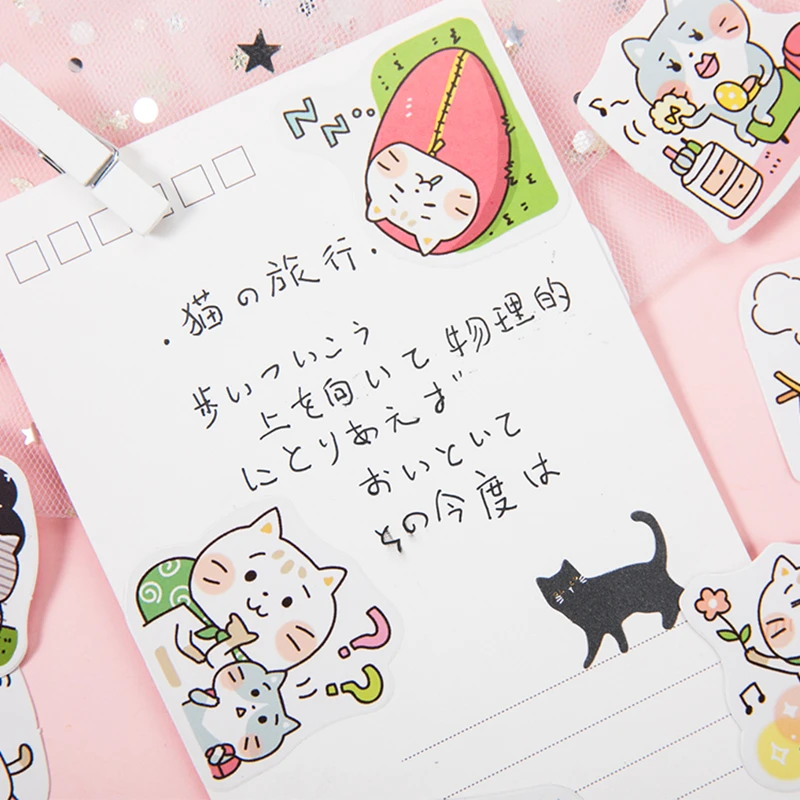 Zz...
・猫の旅行・
歩いついこう
上を向いて物理的
にとりあえず
おいといて
その今度は
??